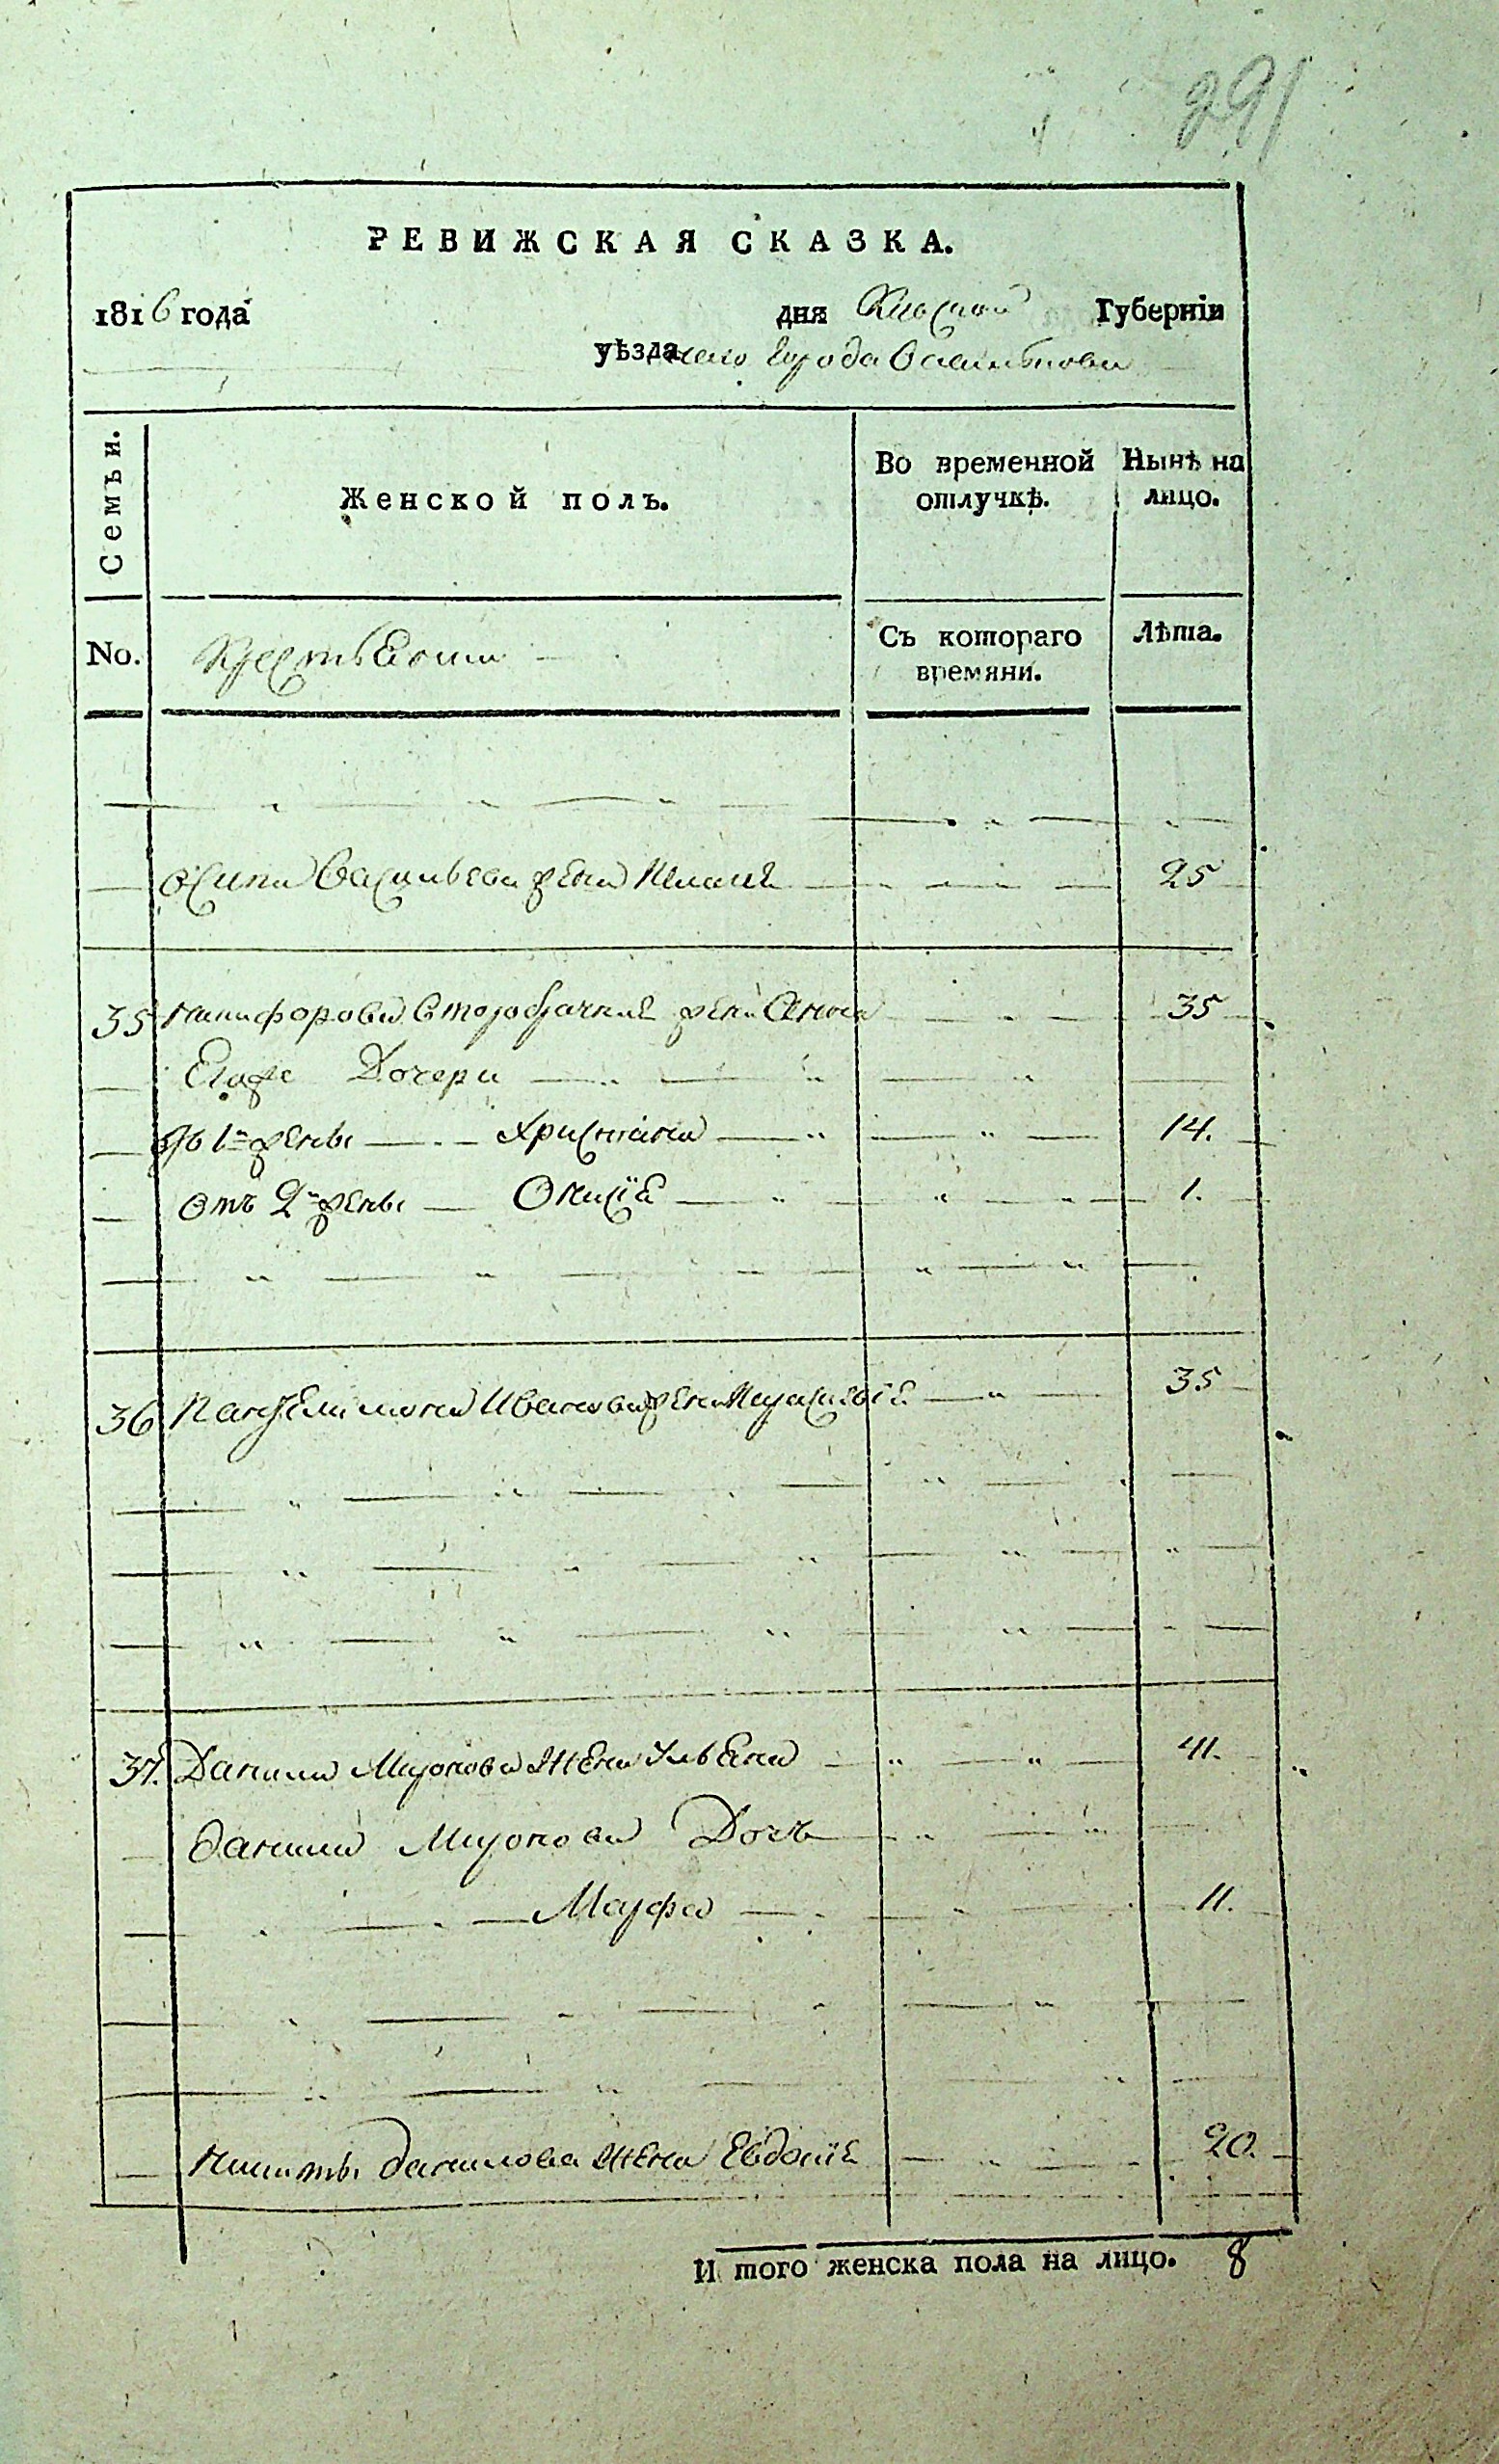 291
РЕВИЖСКАЯ СКАЗКА.
1816 года дня Киевской Губерніи
уѣзда города
Семьи. Женской полъ. Во временной отлучкѣ. Нынѣ на лицо.
No. Крестьяни Съ котораго времяни. Лѣта.
Осипа Васильева жена 25
35 Никифорова второбрачная жена Анна 35
Егоже Дочери
отъ 1й жены Христина 14.
отъ 2й жены Ѳкисіѣ 1.
36 Пантелимона Иванова жена Параскевіѣ 35
37. Данила Миронова жена Ульѣна 41.
Данила Миронова Дочь
Марфа 11.
Никиты Данилова жена Евдокіѣ 20.
И того женска пола на лицо. 8